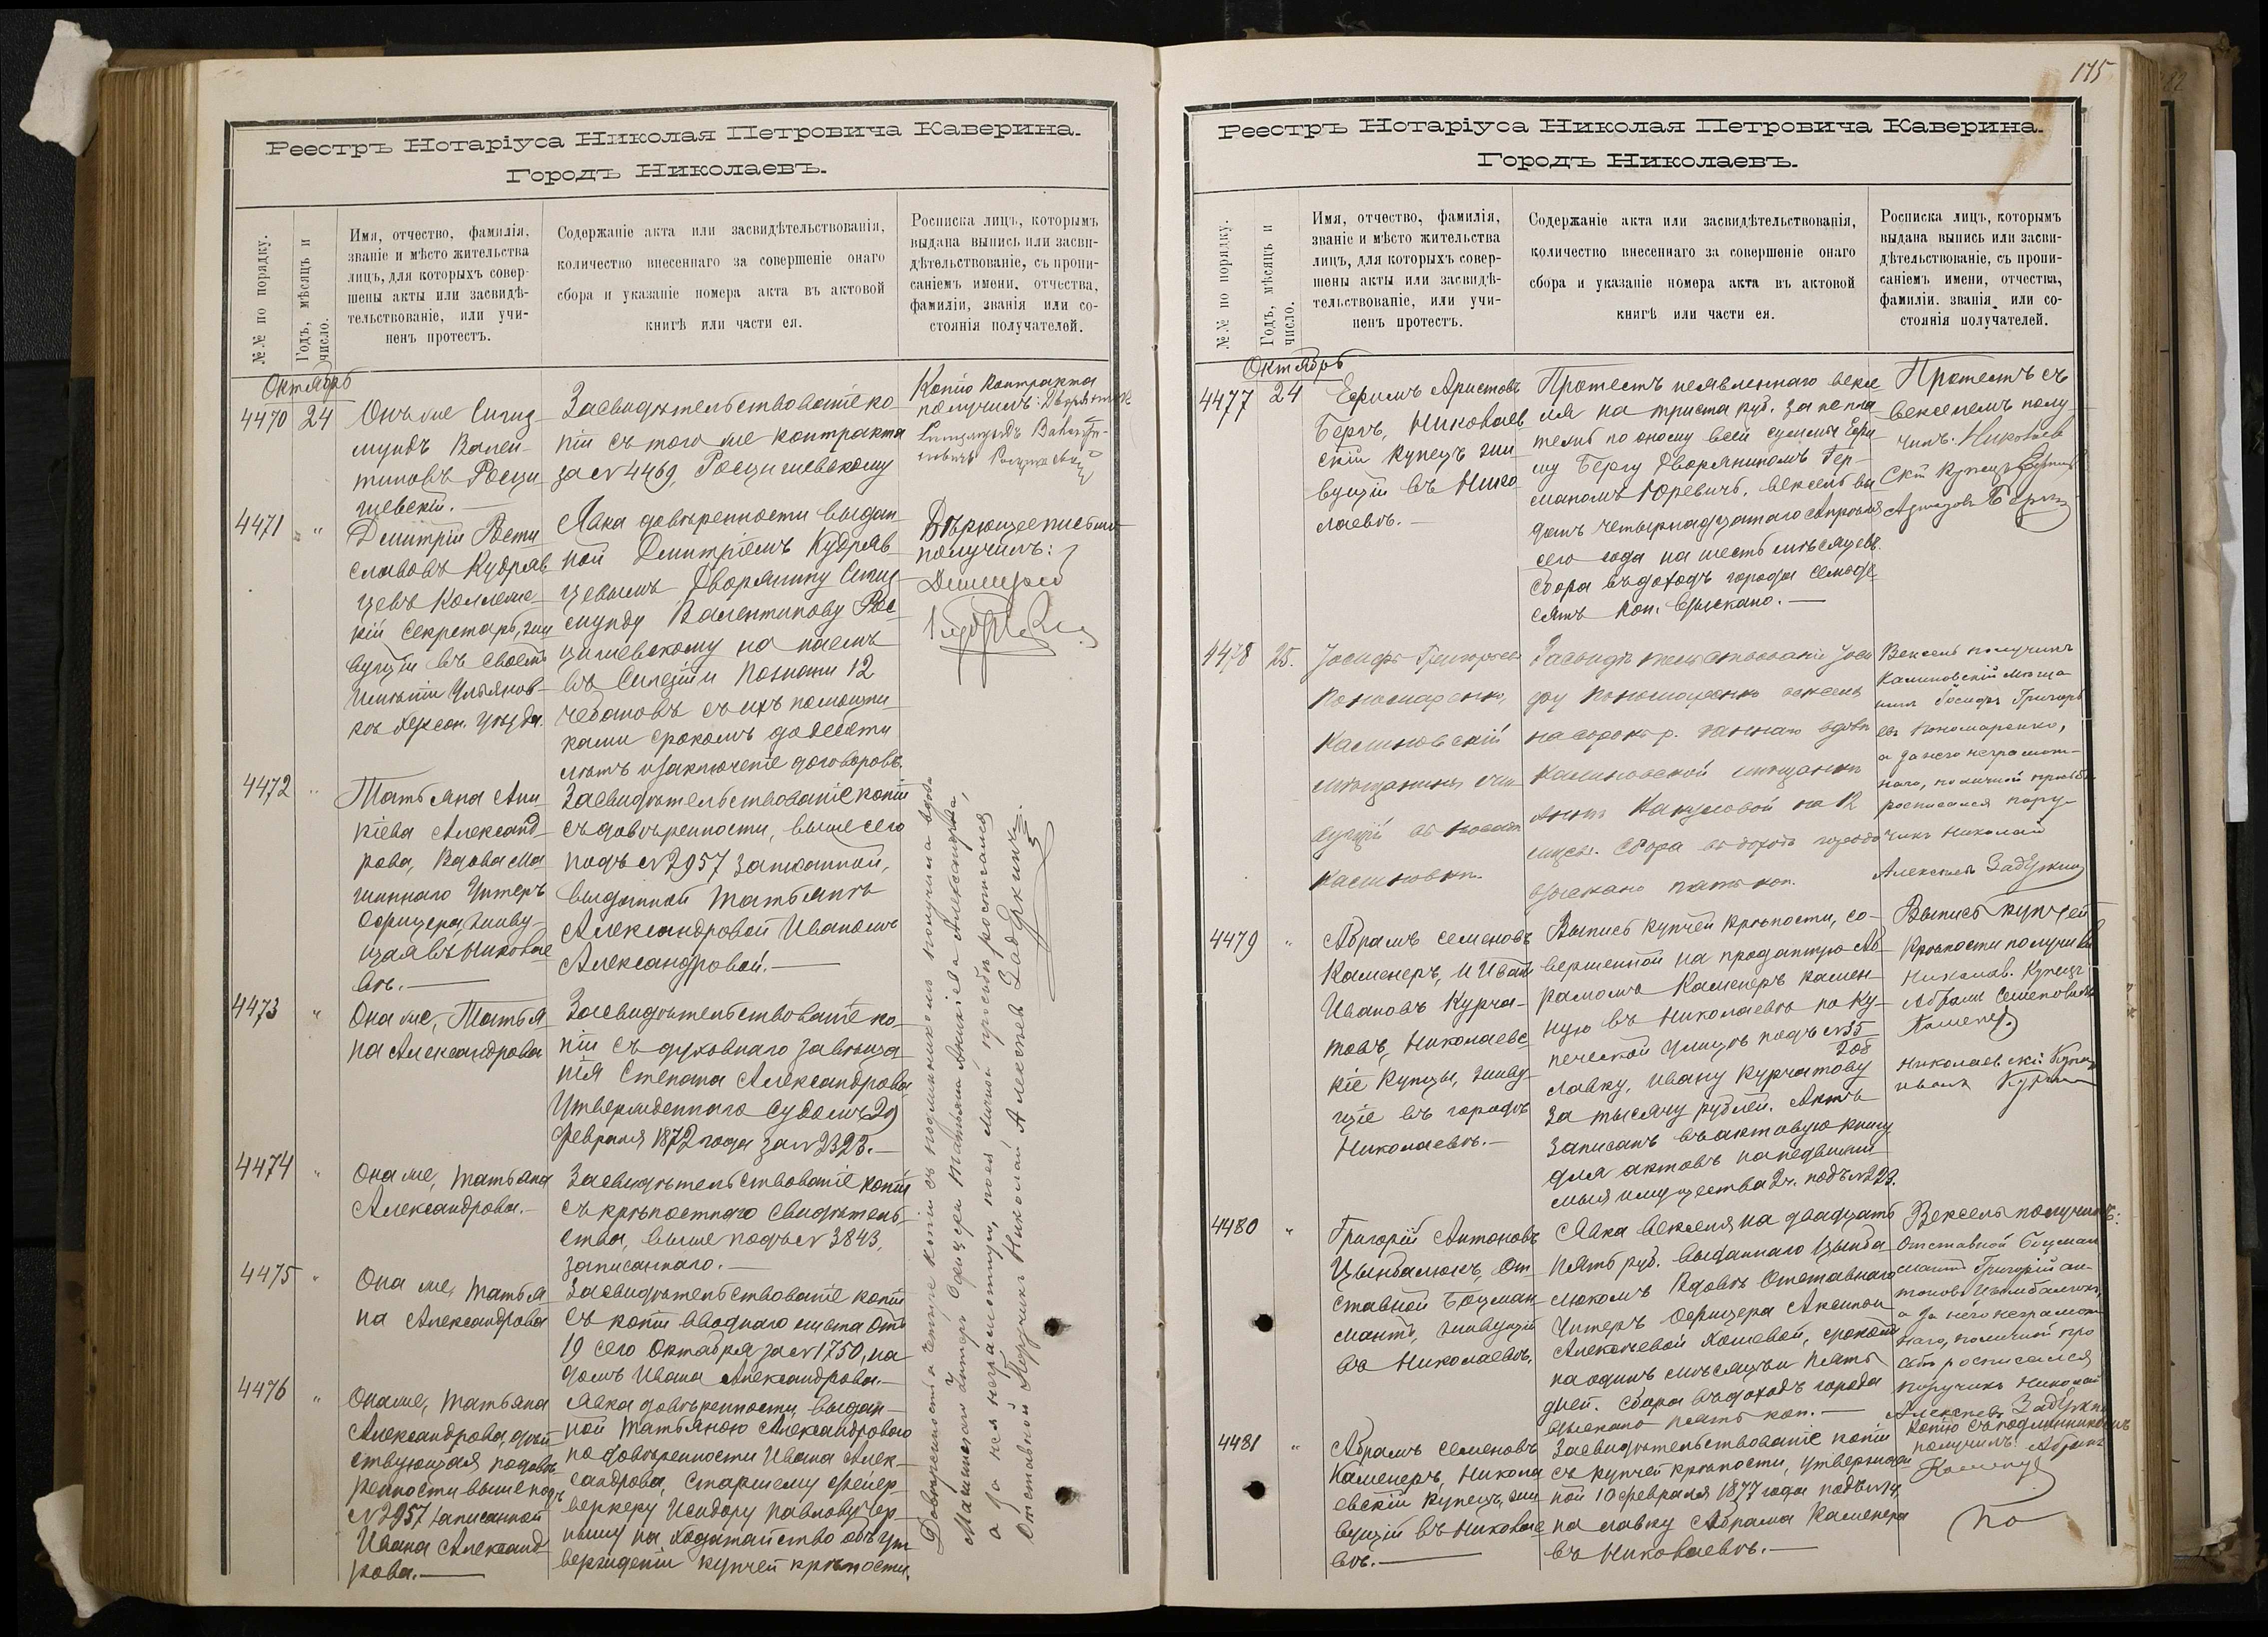 Реестръ Нотаріуса Николая Петровича Каверина.
Городъ Николаевъ.
№№ по порядку.
Годъ, мѣсяцъ и
число.
Имя, отчество, фамилія,
званіе и мѣсто жительства
лицъ, для которыхъ совер-
шены акты или засвидѣ-
тельствованіе, или учи-
ненъ протестъ.
Содержаніе акта или засвидѣтельствованія,
количество внесеннаго за совершеніе онаго
сбора и указаніе номера акта въ актовой
книгѣ или части ея.
Росписка лицъ, которымъ
выдана выпись или засви-
дѣтельствованіе, съ пропи-
саніемъ имени, отчества,
фамиліи, званія или со-
стоянія получателей.
Октябрь
4470 24
Онъ же Сигиз-
мундъ Вален-
тиновъ Росци-
шевскій.
Засвидѣтельствованіе ко-
піи съ того же контракта
за № 4469, Росцишевскому
Копію контракта
получилъ: Дворянинъ
Сигизмундъ Валенти-
новичъ
4471 "
Дмитрій Рости-
славовъ Кудряв-
цевъ Коллеж-
скій Секретарь, жи-
вущій въ своемъ
имѣніи Ульянов-
кѣ Херсон. уѣзда.
Явка довѣренности выдан-
ной Дмитріемъ Кудряв-
цевымъ Дворянину Сигиз-
мунду Валентинову Рос-
цишевскому на наемъ
въ Силезіи и Познани 12
чебановъ съ ихъ помощни-
ками срокомъ до десяти
лѣтъ и заключеніе договоровъ.
Вѣрющее письмо
получилъ:
Дмитрій
4472 "
Татьяна Ани-
кіева Александ-
рова, Вдова Ма-
шиннаго Унтеръ
Офицера, живу-
щая въ Николае-
вѣ.
Засвидѣтельствованіе копіи
съ довѣренности, выше сего
подъ № 2957 записанной,
выданной Татьянѣ
Александровой Иваномъ
Александровой.
4473 "
Она же, Татья-
на Александрова
Засвидѣтельствованіе ко-
піи съ духовнаго завѣща-
нія Степана Александрова,
Утвержденнаго Судомъ 29
Февраля 1872 года за № 2323.
4474 "
Она же, Татьяна
Александрова.
Засвидѣтельствованіе копіи
съ крѣпостнаго свидѣтель-
ства, выше подъ № 3843,
записаннаго.
4475 "
Она же, Татья-
на Александрова
Засвидѣтельствованіе копіи
съ копіи вводнаго листа отъ
19 сего Октября за № 1750, на
домъ Ивана Александрова.
4476 "
Она же, Татьяна
Александрова, дѣй-
ствующая по довѣ-
ренности выше подъ
№ 2957 записанной
Ивана Александ-
рова.
Явка довѣренности, выдан-
ной Татьяною Александровою
по довѣренности Ивана Алек-
сандрова, Старшему Фейер-
веркеру Исидору Павлову Чер-
ныму на ходатайство объ ут-
вержденіи купчей крѣпости.
Довѣренность и четыре копіи съ подлинниками получила вдова
Машиннаго Унтеръ Офицера Татьяна Аникіева Александрова,
а за нея неграмотную, по ея личной просьбѣ росписался
Отставной Поручикъ Николай Алексѣевъ Задёркинъ.
175
Реестръ Нотаріуса Николая Петровича Каверина.
Городъ Николаевъ.
№№ по порядку.
Годъ, мѣсяцъ и
число.
Имя, отчество, фамилія,
званіе и мѣсто жительства
лицъ, для которыхъ совер-
шены акты или засвидѣ-
тельствованіе, или учи-
ненъ протестъ.
Содержаніе акта или засвидѣтельствованія,
количество внесеннаго за совершеніе онаго
сбора и указаніе номера акта въ актовой
книгѣ или части ея.
Росписка лицъ, которымъ
выдана выпись или засви-
дѣтельствованіе, съ пропи-
саніемъ имени, отчества,
фамиліи, званія или со-
стоянія получателей.
Октябрь
4477 24
Ефимъ Аристовъ
Бергъ, Николаев-
скій купецъ жи-
вущій въ Нико-
лаевѣ.
Протестъ неявленнаго вексе-
ля на триста руб. за непла-
тежъ по оному всей суммы Ефи-
му Бергу Дворяниномъ Гер-
маномъ Юревичъ, вексель вы-
данъ четырнадцатаго Апрѣля
сего года на шесть мѣсяцевъ.
Сбора въ доходъ города семьде-
сятъ коп. взыскано.
Протестъ съ
векселемъ полу-
чилъ: Николаев-
скій купецъ
Бергъ
4478 25.
Іосифъ Григорьевъ
Пономаренко,
Калиновскій
мѣщанинъ жи-
вущій въ посадѣ
Калиновкѣ.
Засвидѣтельствованіе Іоси-
фу Пономаренко вексель
на сорокъ р. даннаго вдовѣ
Калиновской мѣщанкѣ
на 12
мѣсяц. Сбора въ доходъ города
взыскано пять коп.
Вексель получилъ
Калиновскій мѣща-
нинъ Іосифъ Григорь-
евъ Пономаренко,
а за него неграмот-
наго, по личной просьбѣ
росписался пору-
чикъ Николай
Алексѣевъ Задёркинъ
4479 "
Абрамъ Семеновъ
Каменеръ, и Иванъ
Ивановъ Курча-
товъ, Николаевс-
кіе купцы, живу-
щіе въ городѣ
Николаевѣ.
Выпись купчей крѣпости, со-
вершенной на проданную Аб-
рамомъ Каменеръ камен-
ную въ Николаевѣ по Ку-
печеской улицѣ подъ № 35/208
лавку, Ивану Курчатову
за тысячу рублей. Актъ
записанъ въ актовую книгу
для актовъ на недвижи-
мыя имущества 2 ч. подъ № 229.
Выпись купчей
крѣпости получилъ
Николав. Купецъ
Абрамъ Семеновичъ
Каменер.
Николаевскій Купецъ
Иванъ
4480 "
Григорій Антоновъ
Цынбалюкъ, От-
ставной Боцман-
манъ, живущій
въ Николаевѣ.
Явка векселя на двадцать
пять руб. выданнаго Цынба-
люкомъ Вдовѣ Отставнаго
Унтеръ Офицера Аксиньи
Алексѣевой Хомевой, срокомъ
на одинъ мѣсяцъ и пять
дней. Сбора въ доходъ города
взыскано пять коп.
Вексель получилъ:
Отставной Боцман-
манъ Григорій Ан-
тоновъ Цымбалюкъ,
а за него неграмот-
наго, по личной про-
сьбѣ росписался
Поручикъ Николай
Алексѣевъ Задёркинъ
4481 "
Абрамъ Семеновъ
Каменеръ, Никола-
евскій купецъ, жи-
вущій въ Николае-
вѣ.
Засвидѣтельствованіе копіи
съ купчей крѣпости, утвержден-
ной 10 Февраля 1877 года подъ № 14,
на лавку Абрама Каменера
въ Николаевѣ.
Копію съ подлинникомъ
получилъ: Абрамъ
Каменер
По